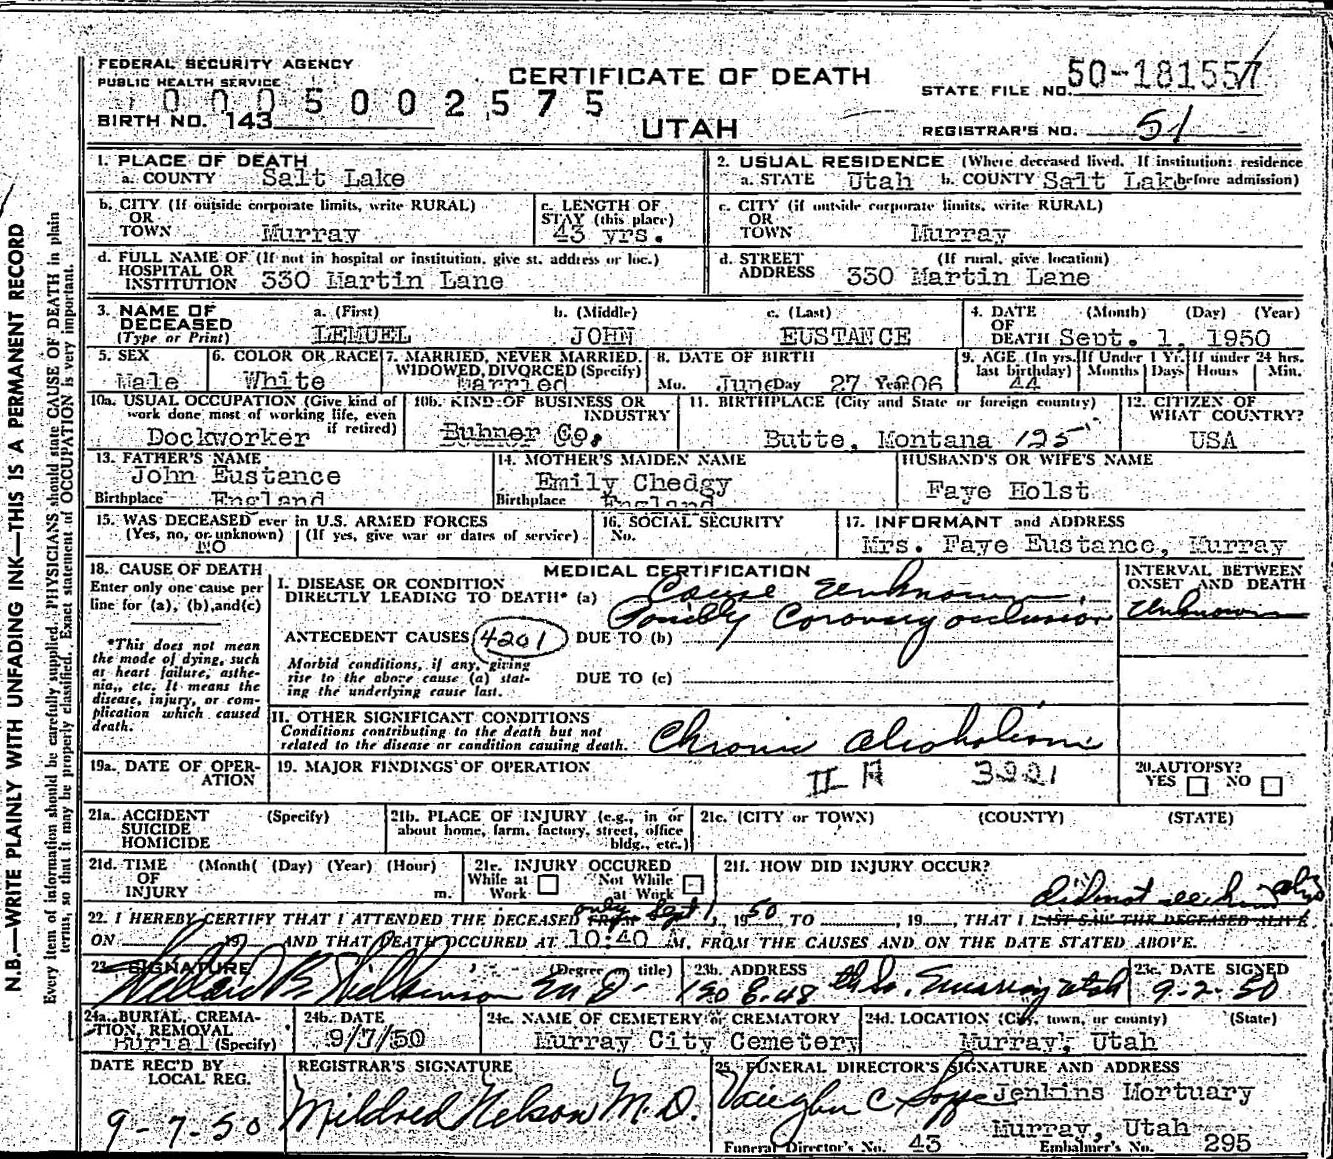 FEDERAL SECURITY AGENCY
PUBLIC HEALTH SERVICE
CERTIFICATE OF DEATH
UTAH
STATE FILE NO. 50-181557
0005002575
BIRTH NO. 143
REGISTRAR'S NO. 51
1. PLACE OF DEATH
a. COUNTY Salt Lake
2. USUAL RESIDENCE (Where deceased lived. If institution: residence before admission)
a. STATE Utah b. COUNTY Salt Lake
b. CITY (If outside corporate limits, write RURAL)
OR
TOWN Murray
c. LENGTH OF
STAY (this place)
43 yrs.
c. CITY (if outside corporate limits, write RURAL)
OR
TOWN Murray
d. FULL NAME OF (If not in hospital or institution, give st. address or loc.)
HOSPITAL OR
INSTITUTION 330 Martin Lane
d. STREET (If rural, give location)
ADDRESS 330 Martin Lane
3. NAME OF
DECEASED
(Type or Print)
a. (First) b. (Middle) c. (Last)
LEMUEL JOHN EUSTANCE
4. DATE (Month) (Day) (Year)
OF
DEATH Sept. 1, 1950
5. SEX
Male
6. COLOR OR RACE
White
7. MARRIED, NEVER MARRIED,
WIDOWED, DIVORCED (Specify)
Married
8. DATE OF BIRTH
Mo. June Day 27 Year 1906
9. AGE (In yrs. last birthday) 44
If Under 1 Yr. Months Days
If under 24 hrs. Hours Min.
10a. USUAL OCCUPATION (Give kind of
work done most of working life, even
if retired)
Dockworker
10b. KIND OF BUSINESS OR
INDUSTRY
Buhner Co.
11. BIRTHPLACE (City and State or foreign country)
Butte, Montana 125
12. CITIZEN OF
WHAT COUNTRY?
USA
13. FATHER'S NAME
John Eustance
Birthplace England
14. MOTHER'S MAIDEN NAME
Emily Chedgy
Birthplace England
HUSBAND'S OR WIFE'S NAME
Faye Holst
15. WAS DECEASED ever in U.S. ARMED FORCES
(Yes, no, or unknown) (If yes, give war or dates of service)
NO
16. SOCIAL SECURITY
No.
17. INFORMANT and ADDRESS
Mrs. Faye Eustance, Murray
18. CAUSE OF DEATH
Enter only one cause per
line for (a), (b), and (c)
*This does not mean
the mode of dying, such
as heart failure, asthe-
nia, etc. It means the
disease, injury, or com-
plication which caused
death.
MEDICAL CERTIFICATION
I. DISEASE OR CONDITION
DIRECTLY LEADING TO DEATH* (a) Cause Unknown.
Possibly Coronary occlusion
INTERVAL BETWEEN
ONSET AND DEATH
Unknown
ANTECEDENT CAUSES 4201 DUE TO (b)
Morbid conditions, if any, giving
rise to the above cause (a) stat-
ing the underlying cause last.
DUE TO (c)
II. OTHER SIGNIFICANT CONDITIONS
Conditions contributing to the death but not
related to the disease or condition causing death.
Chronic alcoholism
19a. DATE OF OPER-
ATION
19. MAJOR FINDINGS OF OPERATION
II A 3221
20. AUTOPSY?
YES NO
21a. ACCIDENT (Specify)
SUICIDE
HOMICIDE
21b. PLACE OF INJURY (e.g., in or
about home, farm, factory, street, office
bldg., etc.)
21c. (CITY or TOWN) (COUNTY) (STATE)
21d. TIME (Month) (Day) (Year) (Hour)
OF
INJURY m.
21e. INJURY OCCURED
While at Work Not While at Work
21f. HOW DID INJURY OCCUR?
did not see him alive
22. I HEREBY CERTIFY THAT I ATTENDED THE DECEASED FROM only Sept 1, 1950 TO , 19 , THAT I LAST SAW THE DECEASED ALIVE
ON , 19 , AND THAT DEATH OCCURED AT 10:40 M, FROM THE CAUSES AND ON THE DATE STATED ABOVE.
23. SIGNATURE (Degree or title)
Willard B. Wilkinson M D
23b. ADDRESS
120 E. 48th So. Murray Utah
23c. DATE SIGNED
9-2-50
24a. BURIAL, CREMA-
TION, REMOVAL
Burial (Specify)
24b. DATE
9/7/50
24c. NAME OF CEMETERY or CREMATORY
Murray City Cemetery
24d. LOCATION (City, town, or county) (State)
Murray, Utah
DATE REC'D BY
LOCAL REG.
9-7-50
REGISTRAR'S SIGNATURE
Mildred Nelson M.D.
25. FUNERAL DIRECTOR'S SIGNATURE AND ADDRESS
Vaughn C Jenkins Mortuary
Murray, Utah
Funeral Director's No. 43 Embalmer's No. 295
N.B.—WRITE PLAINLY WITH UNFADING INK—THIS IS A PERMANENT RECORD
Every item of information should be carefully supplied. PHYSICIANS should state CAUSE OF DEATH in plain
terms, so that it may be properly classified. Exact statement of OCCUPATION is very important.